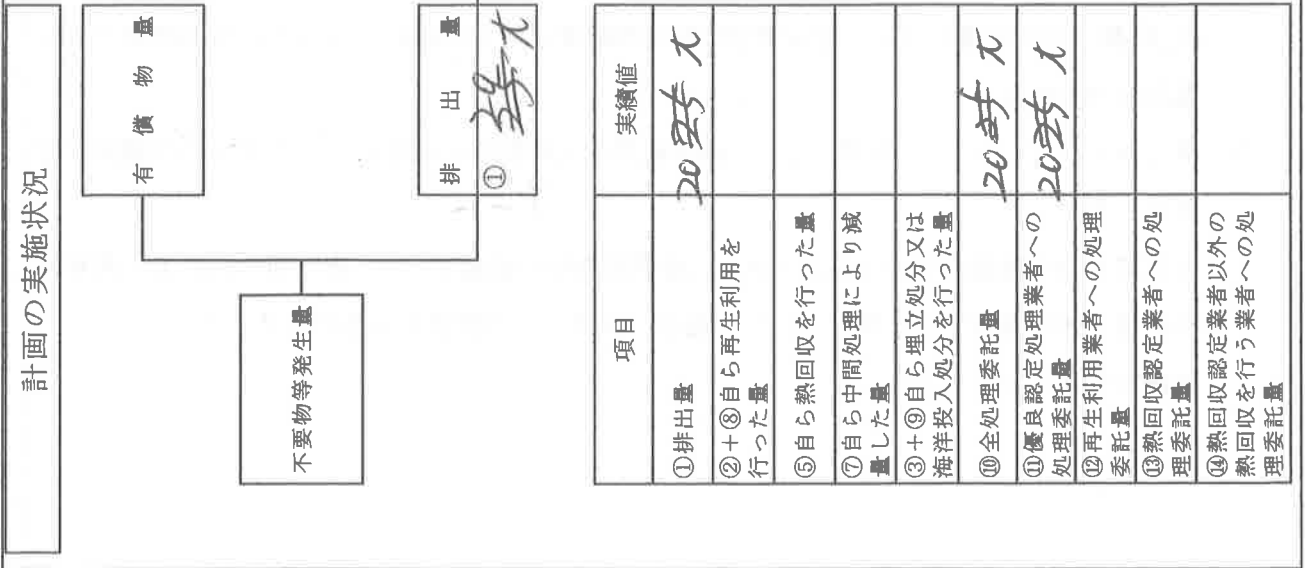 計画の実施状況
有償物量
不要物等発生量
排出量
①
項目
実績値
①排出量
②+⑧自ら再生利用を
行った量
⑤自ら熱回収を行った量
⑦自ら中間処理により減
量した量
③+⑨自ら埋立処分又は
海洋投入処分を行った量
⑩全処理委託量
⑪優良認定処理業者への
処理委託量
⑫再生利用業者への処理
委託量
⑬熱回収認定業者への処
理委託量
⑭熱回収認定業者以外の
熱回収を行う業者への処
理委託量